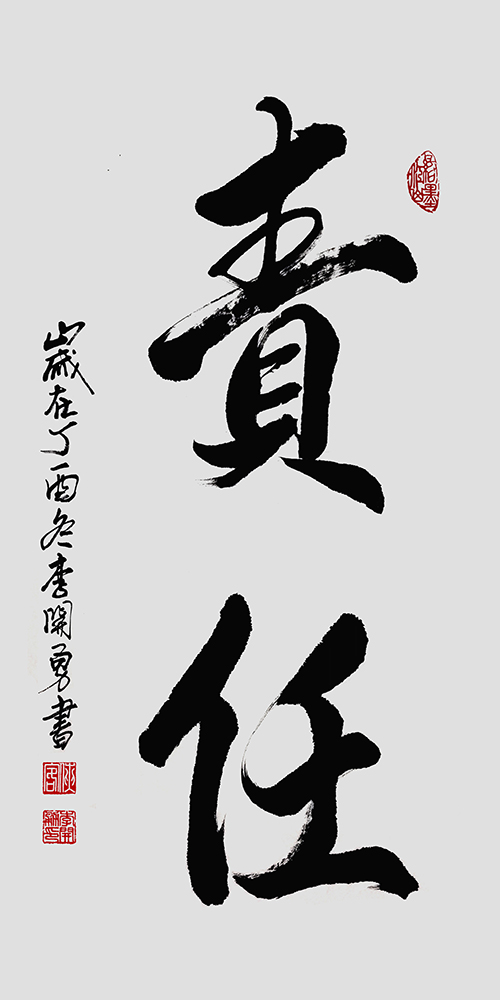 責任
歲在丁酉冬李開勇書